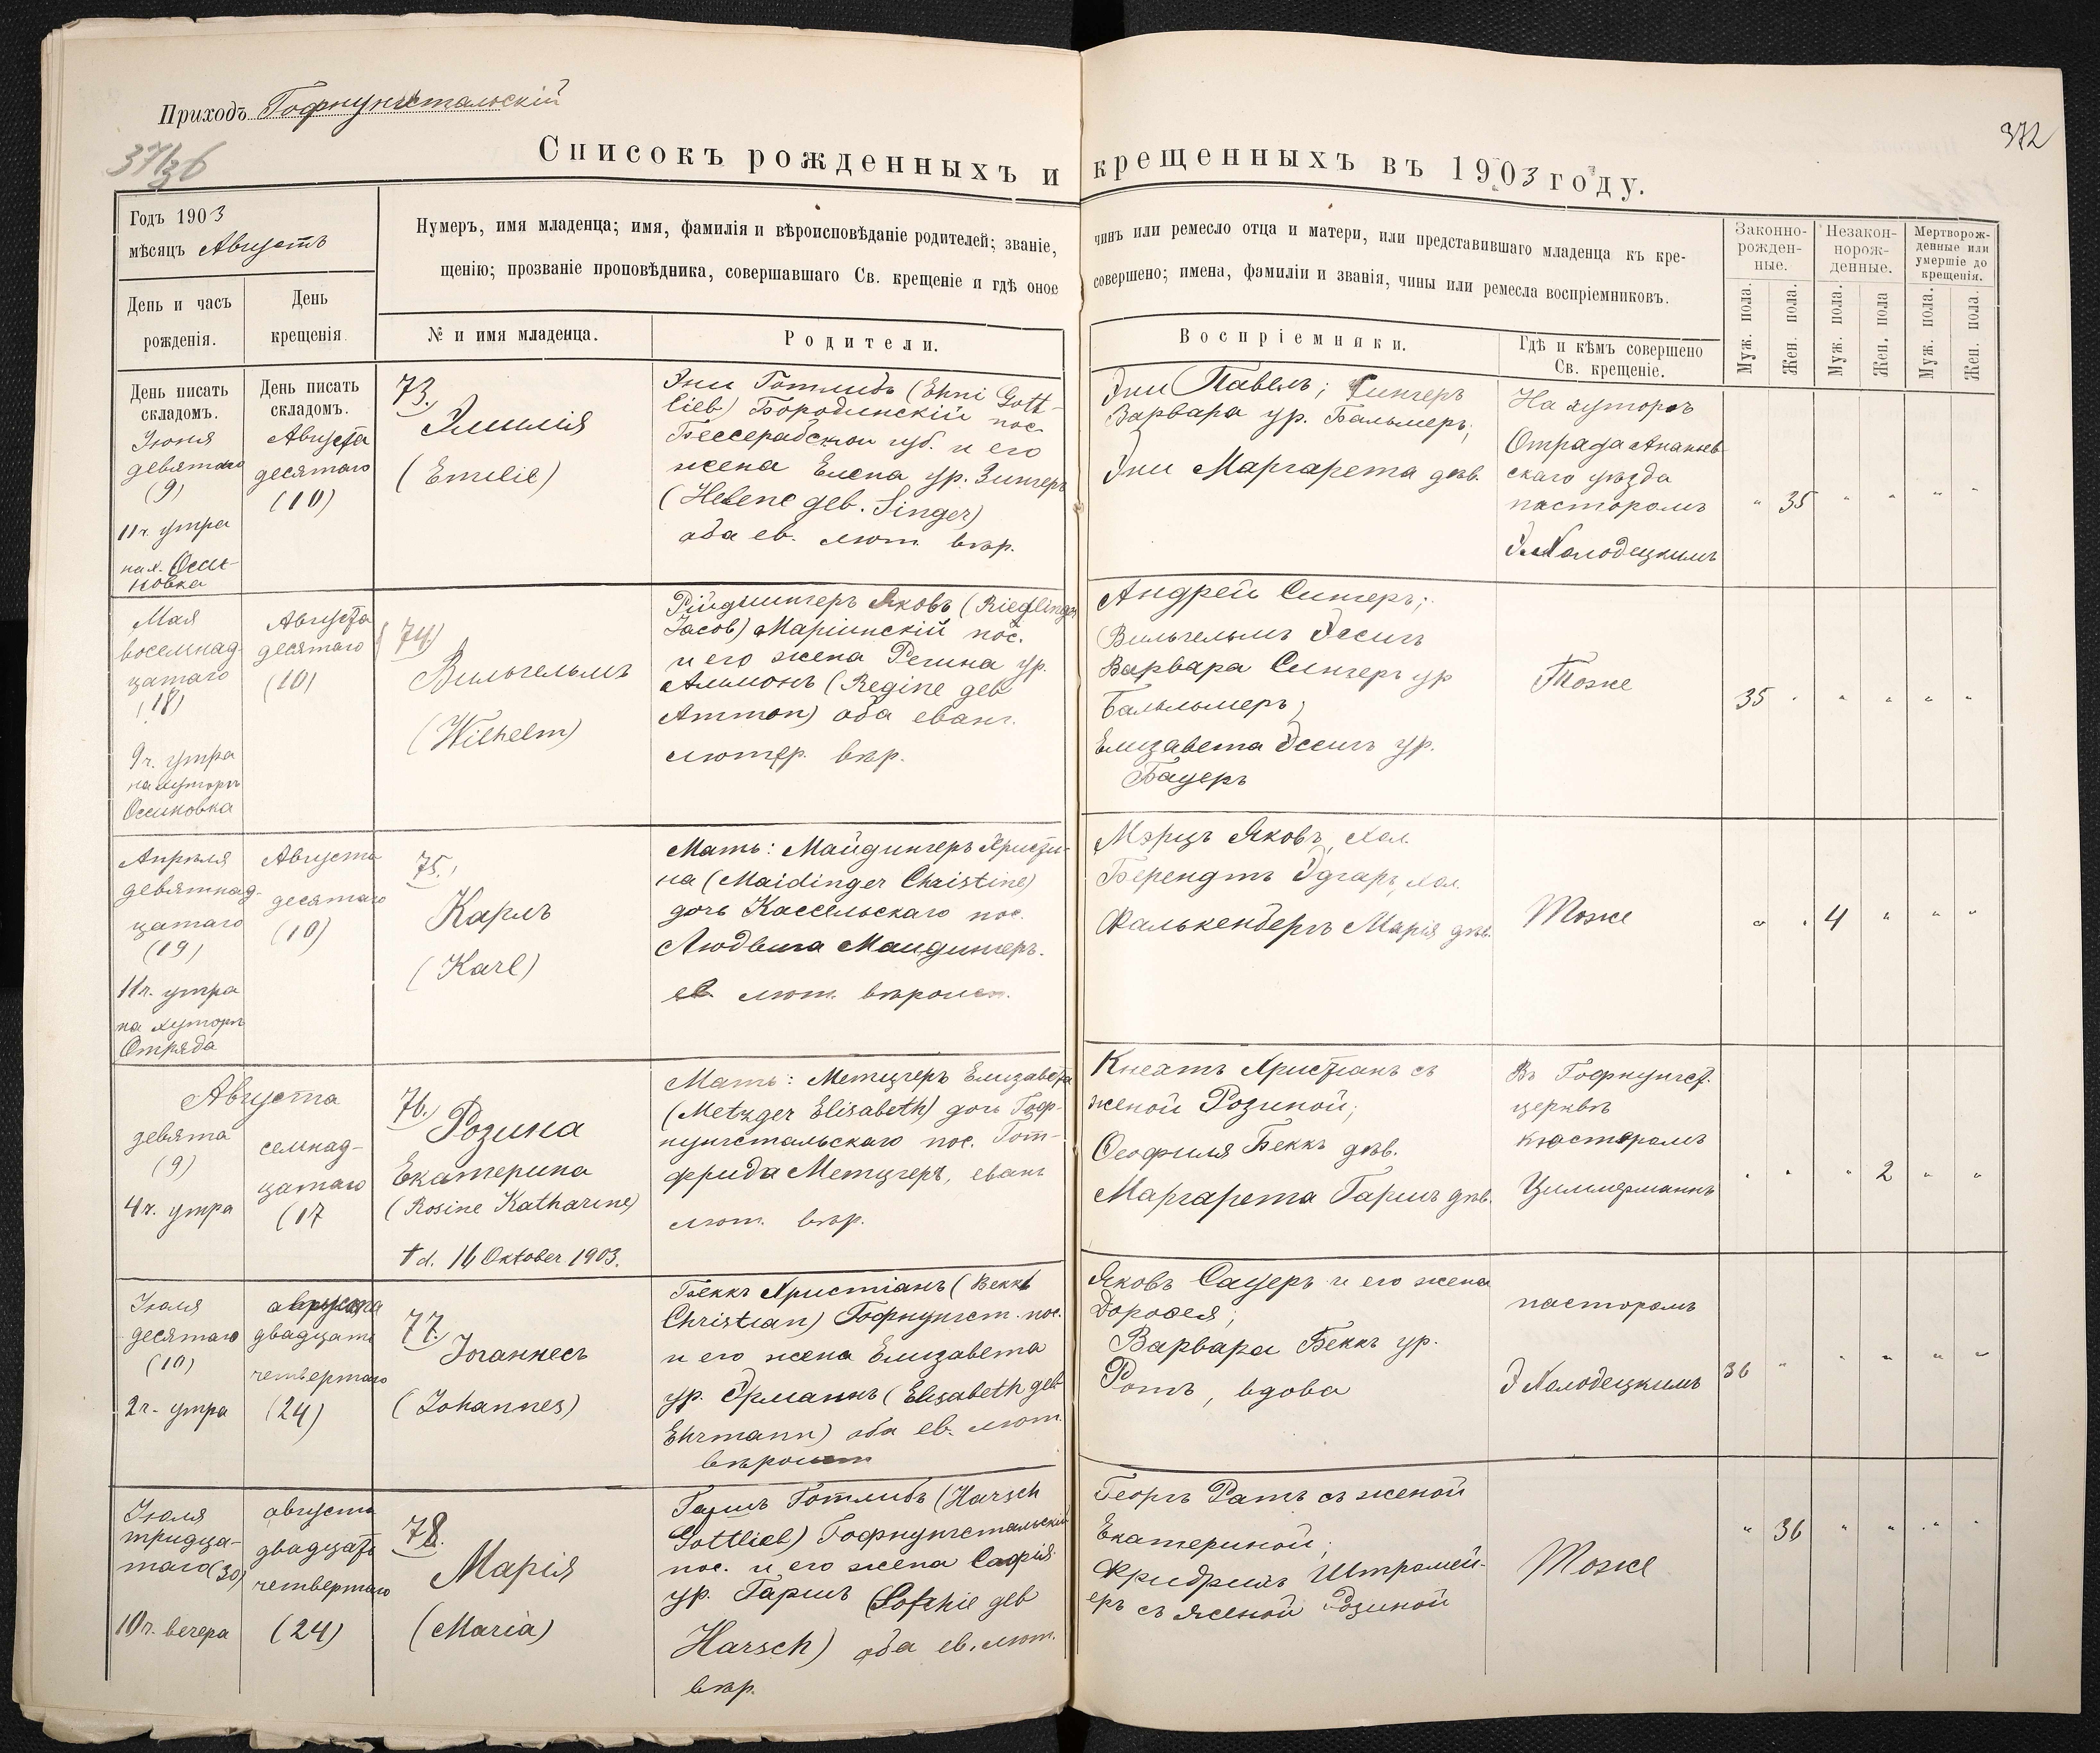 Приходъ Гофнунгстальскій
372
Списокъ рожденныхъ и крещенныхъ въ 1903 году.
Годъ 1903
мѣсяцъ Августъ
День и часъ
рожденія.
День
крещенія.
Нумеръ, имя младенца; имя, фамилія и вѣроисповѣданіе родителей; званіе, чинъ или ремесло отца и матери, или представившаго младенца къ кре-
щенію; прозваніе проповѣдника, совершавшаго Св. крещеніе и гдѣ оное совершено; имена, фамиліи и званія, чины или ремесла воспріемниковъ.
№ и имя младенца.
Родители.
Воспріемники.
Гдѣ и кѣмъ совершено
Св. крещеніе.
Законно-
рожден-
ные.
Незакон-
норож-
денные.
Мертворож-
денные или
умершіе до
крещенія.
Муж. пола.
Жен. пола.
Муж. пола.
Жен. пола
Муж. пола.
Жен. пола.
День писать
складомъ.
Іюня
девятаго
(9)
11ч. утра
на х. Оси-
новка
День писать
складомъ.
Августа
десятаго
(10)
73.
Эмилія
(Emilie)
Эни Готлибъ (Ehni Gott-
lieb) Бородинскій пос.
Бессерабской губ. и его
жена Елена ур. Зингеръ
(Helene geb. Singer)
оба ев. лют. вѣр.
Эни Павелъ; Сингеръ
Варвара ур. Бальмеръ;
Эни Маргарета дѣв.
На хуторѣ
Отрада Ананьев-
скаго уѣзда
пасторомъ
Э. Холодецкимъ
" 35 " " " "
Мая
восемнад-
цатаго
(18)
9ч. утра
на хуторѣ
Осиновка
Августа
десятаго
(10)
74.)
Вильгельмъ
(Wilhelm)
Ридлингеръ Яковъ (Riedlinger
Jacob) Маріинскій пос.
и его жена Регина ур.
Аммонъ (Regine geb
Ammon) оба еванг.
лютер. вѣр.
Андрей Сингеръ;
Вильгельмъ Эссигъ
Варвара Сингеръ ур
Бальмеръ;
Елизавета Эссигъ ур.
Бауеръ
Тоже
35 " " " " "
Апрѣля
девятнад-
цатаго
(19)
11ч. утра
на хуторѣ
Отрада
Августа
десятаго
(10)
75.)
Карлъ
(Karl)
Мать: Майдингеръ Христи-
на (Maidinger Christine)
дочь Кассельскаго пос.
Людвига Майдингеръ.
ев. лют. вѣроисп.
Мэрцъ Яковъ, хол.
Берендтъ Эдгаръ, хол.
Фалькенбергъ Марія дѣв.
Тоже
" " 4 " " "
Августа
девята
(9)
4ч. утра
семнад-
цатаго
(17
76.)
Розина
Екатерина
(Rosine Katharine)
† d. 16 Oktober 1903.
Мать: Метцгеръ Елизавета
(Metzger Elisabeth) дочь Гоф-
нунгстальскаго пос. Гот-
фрида Метцгеръ, еванг
лют. вѣр.
Кнехтъ Христіанъ съ
женой Розиной;
Феофиля Беккъ дѣв.
Маргарета Гаршъ дѣв.
Въ Гофнунгст.
церквѣ
кюстеромъ
Циммерманнъ
" " " 2 " "
Іюля
десятаго
(10)
2ч. утра
августа
двадцать
четвертаго
(24)
77.
Іоганнесъ
(Johannes)
Беккъ Христіанъ (Bekk
Christian) Гофнунгст. пос.
и его жена Елизавета
ур. Эрманнъ (Elisabeth geb
Ehrmann) оба ев. лют.
вѣроисп
Яковъ Сауеръ и его жена
Доротея;
Варвара Беккъ ур.
Ротъ, вдова
пасторомъ
Э Холодецкимъ
36 " " " " "
Іюля
тридца-
таго (30)
10ч. вечера
августа
двадцать
четвертаго
(24)
78.
Марія
(Maria)
Гаршъ Готлибъ (Harsch
Gottlieb) Гофнунгстальскій
пос. и его жена Софія
ур. Гаршъ (Sophie geb
Harsch) оба ев. лют.
вѣр.
Георгъ Ратъ съ женой
Екатериной;
Фридрихъ Штромей-
еръ съ женой Розиной
Тоже
" 36 " " " "